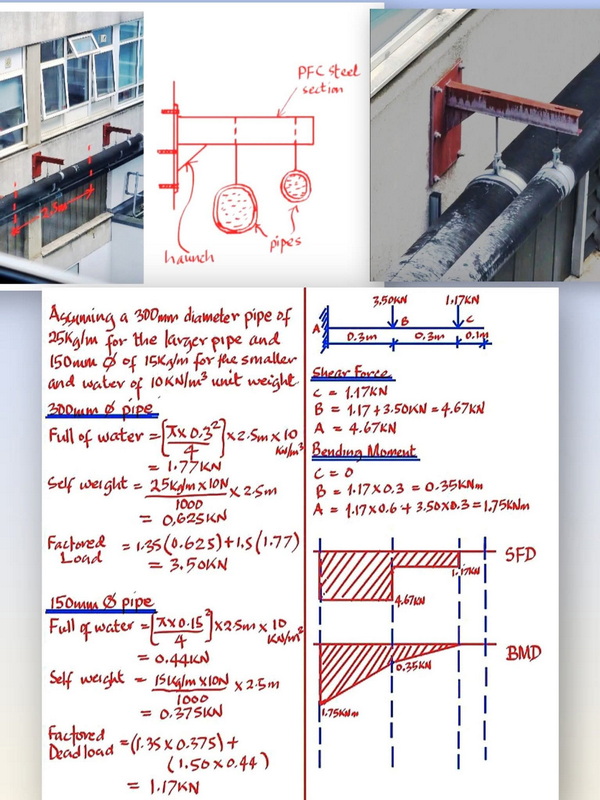 2.5m
PFC Steel
section
haunch
pipes
Assuming a 300mm diameter pipe of
25Kg/m for the larger pipe and
150mm Ø of 15Kg/m for the smaller
and water of 10KN/m³ unit weight
300mm Ø pipe
Full of water = [π x 0.3² / 4] x 2.5m x 10 KN/m³
= 1.77KN
Self weight = 25Kg/m x 10N / 1000 x 2.5m
= 0.625KN
Factored
Load = 1.35(0.625) + 1.5(1.77)
= 3.50KN
150mm Ø pipe
Full of water = [π x 0.15² / 4] x 2.5m x 10 KN/m²
= 0.44KN
Self weight = 15Kg/m x 10N / 1000 x 2.5m
= 0.375KN
Factored
Dead load = (1.35 x 0.375) +
(1.50 x 0.44)
= 1.17KN
3.50KN 1.17KN
A B C
0.3m 0.3m 0.1m
Shear Force
C = 1.17KN
B = 1.17 + 3.50KN = 4.67KN
A = 4.67KN
Bending Moment
C = 0
B = 1.17 x 0.3 = 0.35KNm
A = 1.17 x 0.6 + 3.50 x 0.3 = 1.75KNm
SFD
1.17KN
4.67KN
BMD
0.35KNm
1.75KNm